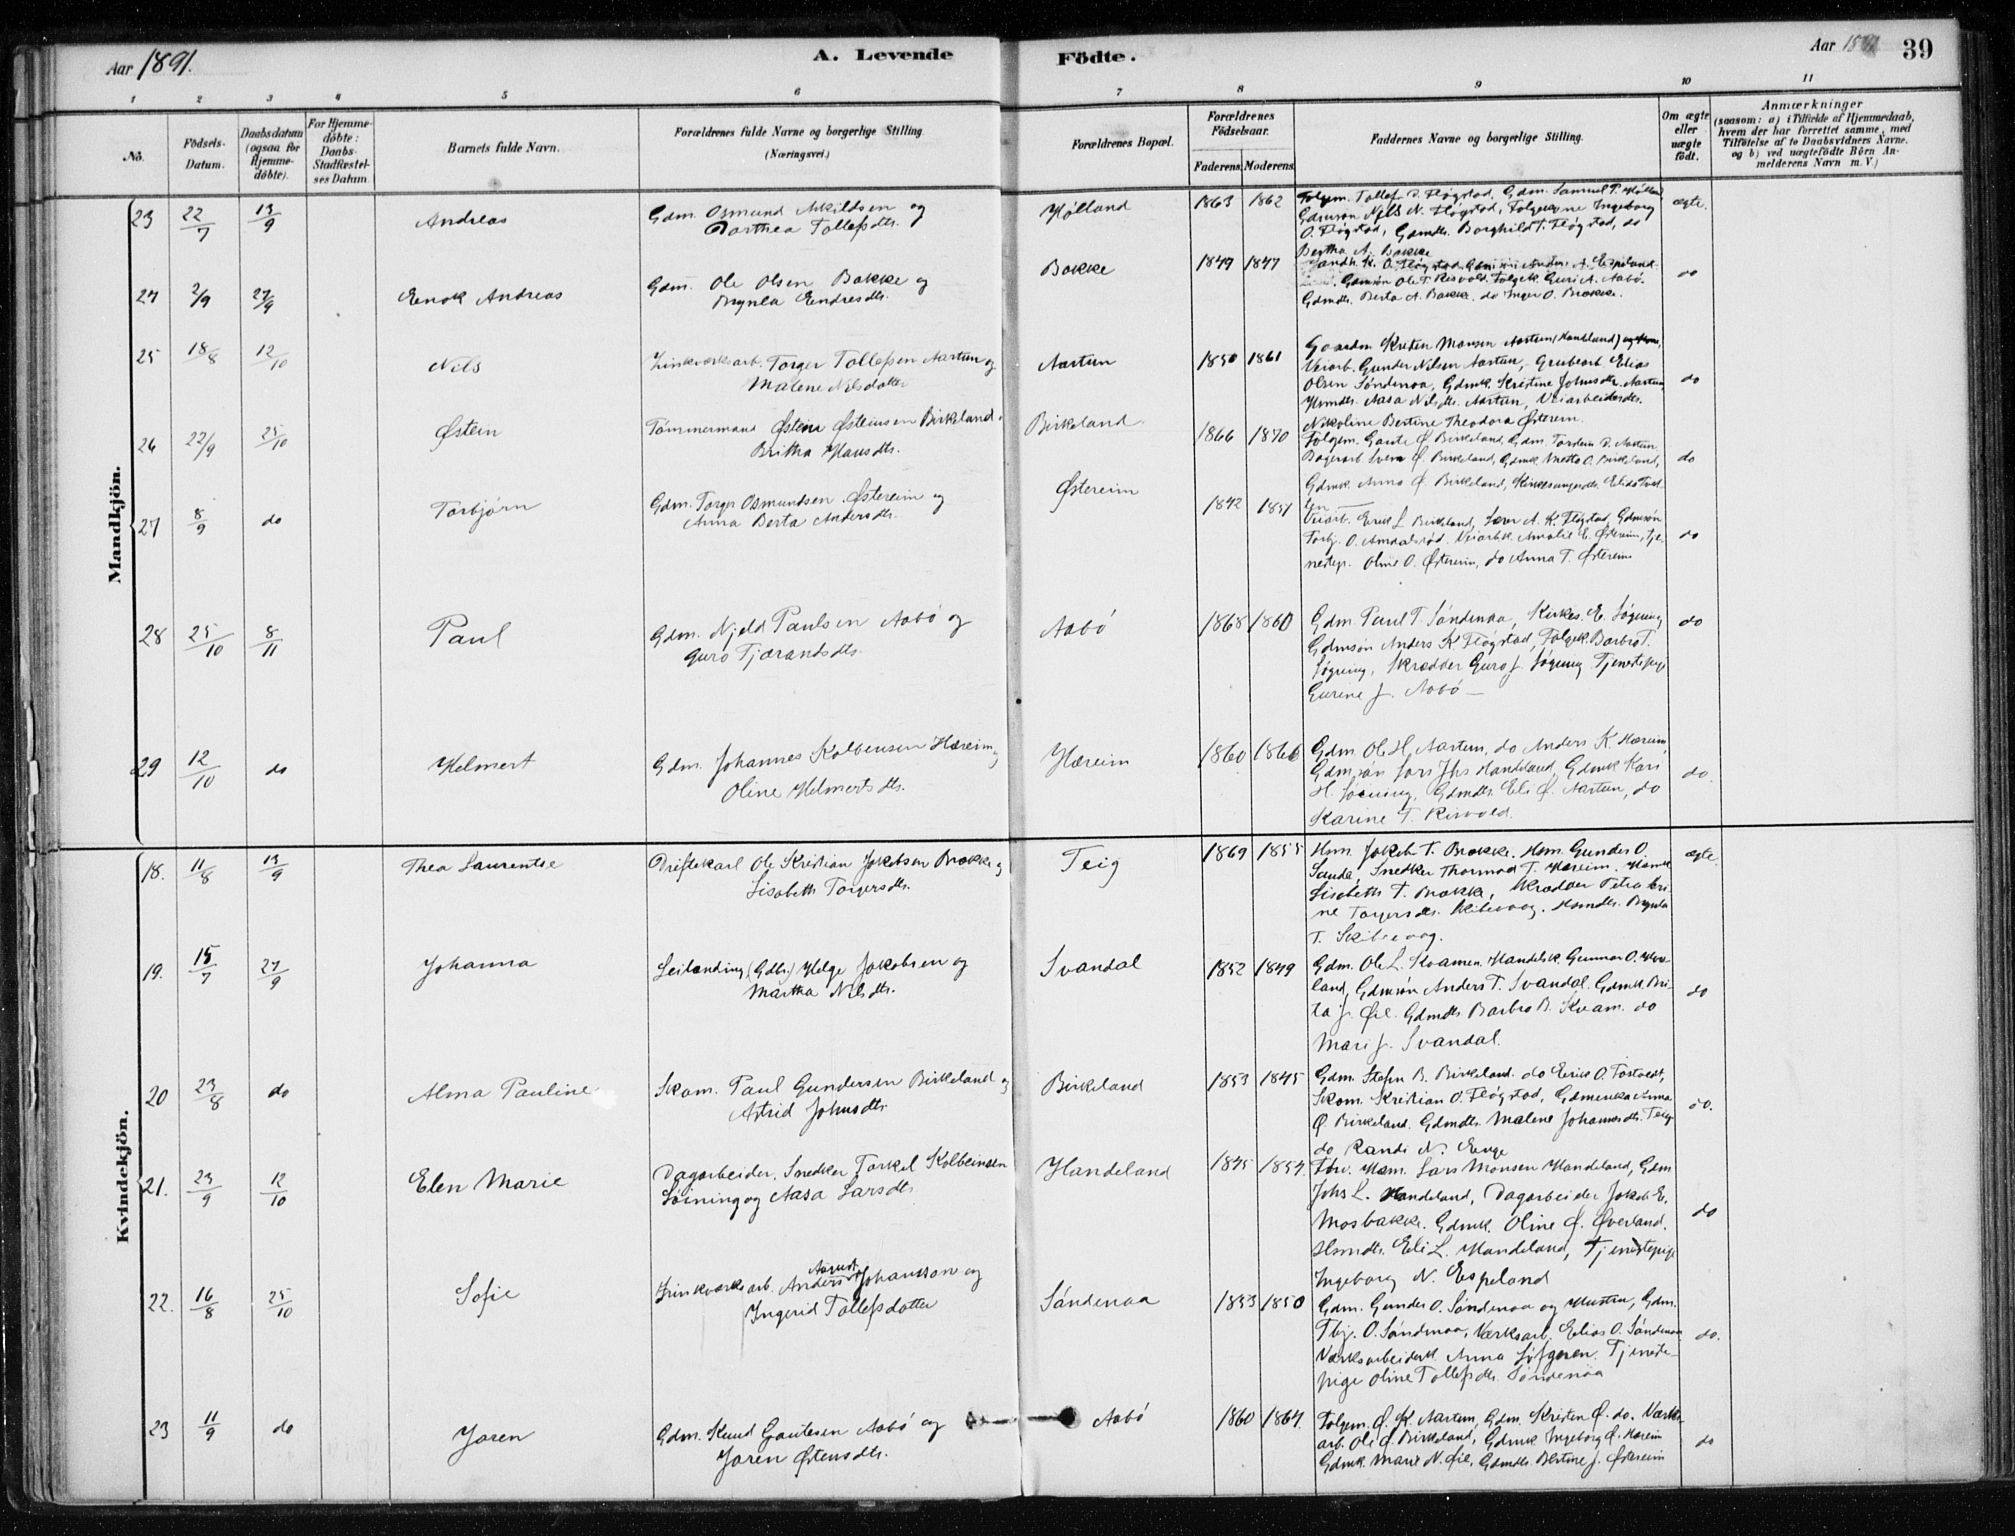 Aar 1891.
A. Levende
Födte.
Aar 1891
39
1 2 3 4 5 6 7 8 9 10 11
No.
Födsels-
Datum.
Daabsdatum
(ogsaa for
Hjemme-
döbte).
For Hjemme-
döbte:
Daabs-
Stadfæstel-
ses Datum.
Barnets fulde Navn.
Forældrenes fulde Navne og borgerlige Stilling
(Næringsvei.)
Forældrenes Bopæl.
Forældrenes
Födselsaar.
Faderens. Moderens.
Faddernes Navne og borgerlige Stilling.
Om ægte
eller
uægte
födt.
Anmærkninger
(saasom: a) i Tilfælde af Hjemmedaab,
hvem der har forrettet samme, med
Tilföielse af to Daabsvidners Navne,
og b) ved uægtefödte Börn An-
melderens Navn m. V.)
Mandkjön.
23 22/7 13/9 Andreas
Gdm. Osmund Askildsen og
Dorthea Tollefsdtr.
Hølland 1863 1862
Folgem. Tollef Fløgstad, Gdm. Samuel T. Hølland
Gdmsøn Nils N. Fløgstad, Folgekone Ingeborg
O. Fløgstad, Gdmdtr. Borghild T. Fløgstad, do
Bertha A. Bakke
ægte.
24 2/9 27/9 Enok Andreas
Gdm. Ole Olsen Bakke og
Brynla Endresdtr.
Bakke 1849 1847
O. Fløgstad Anders A. Espeland
Gdmsøn Ole T. Risvold. Folgek. Guri A. Aabø.
Gdmdtr. Berta A. Bakke. do Inger O. Brække.
do
25 18/8 12/10 Nils
Zinkværksarb. Torger Tollefsen Aartun og
Malene Nilsdatter
Aartun 1850 1861
Gaardm. Kristen Monsen Aartun (Handeland)
Veiarb. Gunder Nilsen Aartun, Grubearb Elias
Olsen Søndenaa, Gdmk. Kristine Johnsdtr. Aartun
Hsmdtr. Aasa Nilsdtr. Aartun, Veiarbeidersdtr.
Nikoline Bertine Theodora Østerein.
do
26 22/9 25/10 Østein
Tømmermand Østein Østeinsen Birkeland
Britha Hansdtr.
Birkeland 1866 1870
Folgem. Gaute Ø. Birkeland, Gdm. Tordein D. Aartun
Bagerarb Sven Ø. Birkeland, Gdmk Mette O. Birkeland,
Gdmk. Anna Ø. Birkeland, Kirkesangersdtr. Elida Tvet-
ten
do
27 8/9 do Torbjørn
Gdm. Torger Osmundsen Østereim og
Anna Berta Andersdtr.
Østereim 1842 1851
Veiarb. Erik L Birkeland, Lærer A. K. Fløgstad, Gdmsøn
Torbj. O. Amdalsrød. Veiarbk. Amalie E. Østereim, Tje-
nestep. Oline O. Østereim, do Anna T. Østereim
do
28 25/10 8/11 Paul
Gdm. Njeld Paulsen Aabø og
Guro Tjærandsdtr.
Aabø 1868 1860
Gdm. Paul T. Søndenaa, Kirkes. E. Søgning
Gdmsøn Anders K Fløgstad, Folgek. Barbro T.
Søgning, Skrædder Guro J. Søgning Tjenestepige
Gurine J. Aabø —
do
29 12/10 do Helmert
Gdm. Johannes Kolbensen Hæreim og
Oline Helmertsdtr.
Hæreim 1860 1866
Gdm. Ole H. Aartun, do Anders K. Hæreim
Gdmsøn Lars Jhs Handeland, Gdmk Kari
H. Søening, Gdmdtr. Eli Ø. Aartun, do
Karine T. Risvold.
do.
Kvindekjön.
18. 11/8 13/9 Thea Laurentse
Driftekarl Ole Kristian Jakobsen Brække og
Lisabeth Torgersdtr.
Teig 1869 1855
Hsm. Jakob T. Brække. Hsm. Gunder O.
Sanda, Snedker Thormod T. Hæreim. Hsmk
Lisabeth T. Brække, Skrædder Petra Kri-
ne Torgersdtr. Skibevaag. Hsmdtr. Brynla
T. Skibevaag.
ægte.
19. 15/7 27/9 Johanna
Leilending (Gdbr.) Helge Jakobsen og
Martha Nilsdtr.
Svandal 1852 1849
Gdm. Ole L. Kvamen. Handelsk Gunnar O. Hov-
land, Gdmsøn Anders T. Svandal. Gdmk. Bri-
ta J. Øie. Gdmdtr Barbro B. Kvam. do
Mari J. Svandal.
do
20 23/8 do Alma Pauline
Skom. Paul Gundersen Birkeland og
Astrid Johnsdtr
Birkeland 1853 1845
Gdm. Stefn B. Birkeland. do Eerik O. Tostvedt,
Skom. Kristian O. Fløgstad, Gdmenka Anna
Ø. Birkeland. Gdmdtr. Malene Johannesdtr. Teig
do Randi N. Enge
do.
21. 23/9 12/10 Elen Marie
Dagarbeider, Snedker Torkel Kolbeinsen
Søining og Aasa Larsdtr
Handeland 1845 1854.
Forv. Hsm. Lars Monsen Handeland, Gdm
Johs L. Handeland, Dagarbeider Jakob E.
Mosbakke. Gdmk. Oline Ø. Øverland.
Hsmdtr. Eli L. Handeland, Tjenestepige
Ingeborg N. Espeland
do
22. 16/8 25/10 Sofie
Zinkværksarb. Anders August Johansson og
Ingerid Tollefsdatter
Søndenaa 1853 1850
Gdm. Gunder O. Søndenaa og Hustru, Gdm.
Tbj. O. Søndenaa, Værksarb. Elias O. Søndenaa
Værksarbeiderk. Anna Løfgren. Tjeneste-
pige Oline Tollefsdtr. Søndenaa
do.
23 11/9 do Joren
Gdm. Knud Gautesen Aabø og
Joren Østensdtr.
Aabø 1860 1864.
Folgem. Ø. K. Aartun, Gdm. Kristen Ø. do. Værks-
arb. Ole Ø. Birkeland, Gdmk Ingeborg Ø. Hæreim
Gdmk. Mari N. Øie, Gdmdtr. Bertine J. Østereim
do